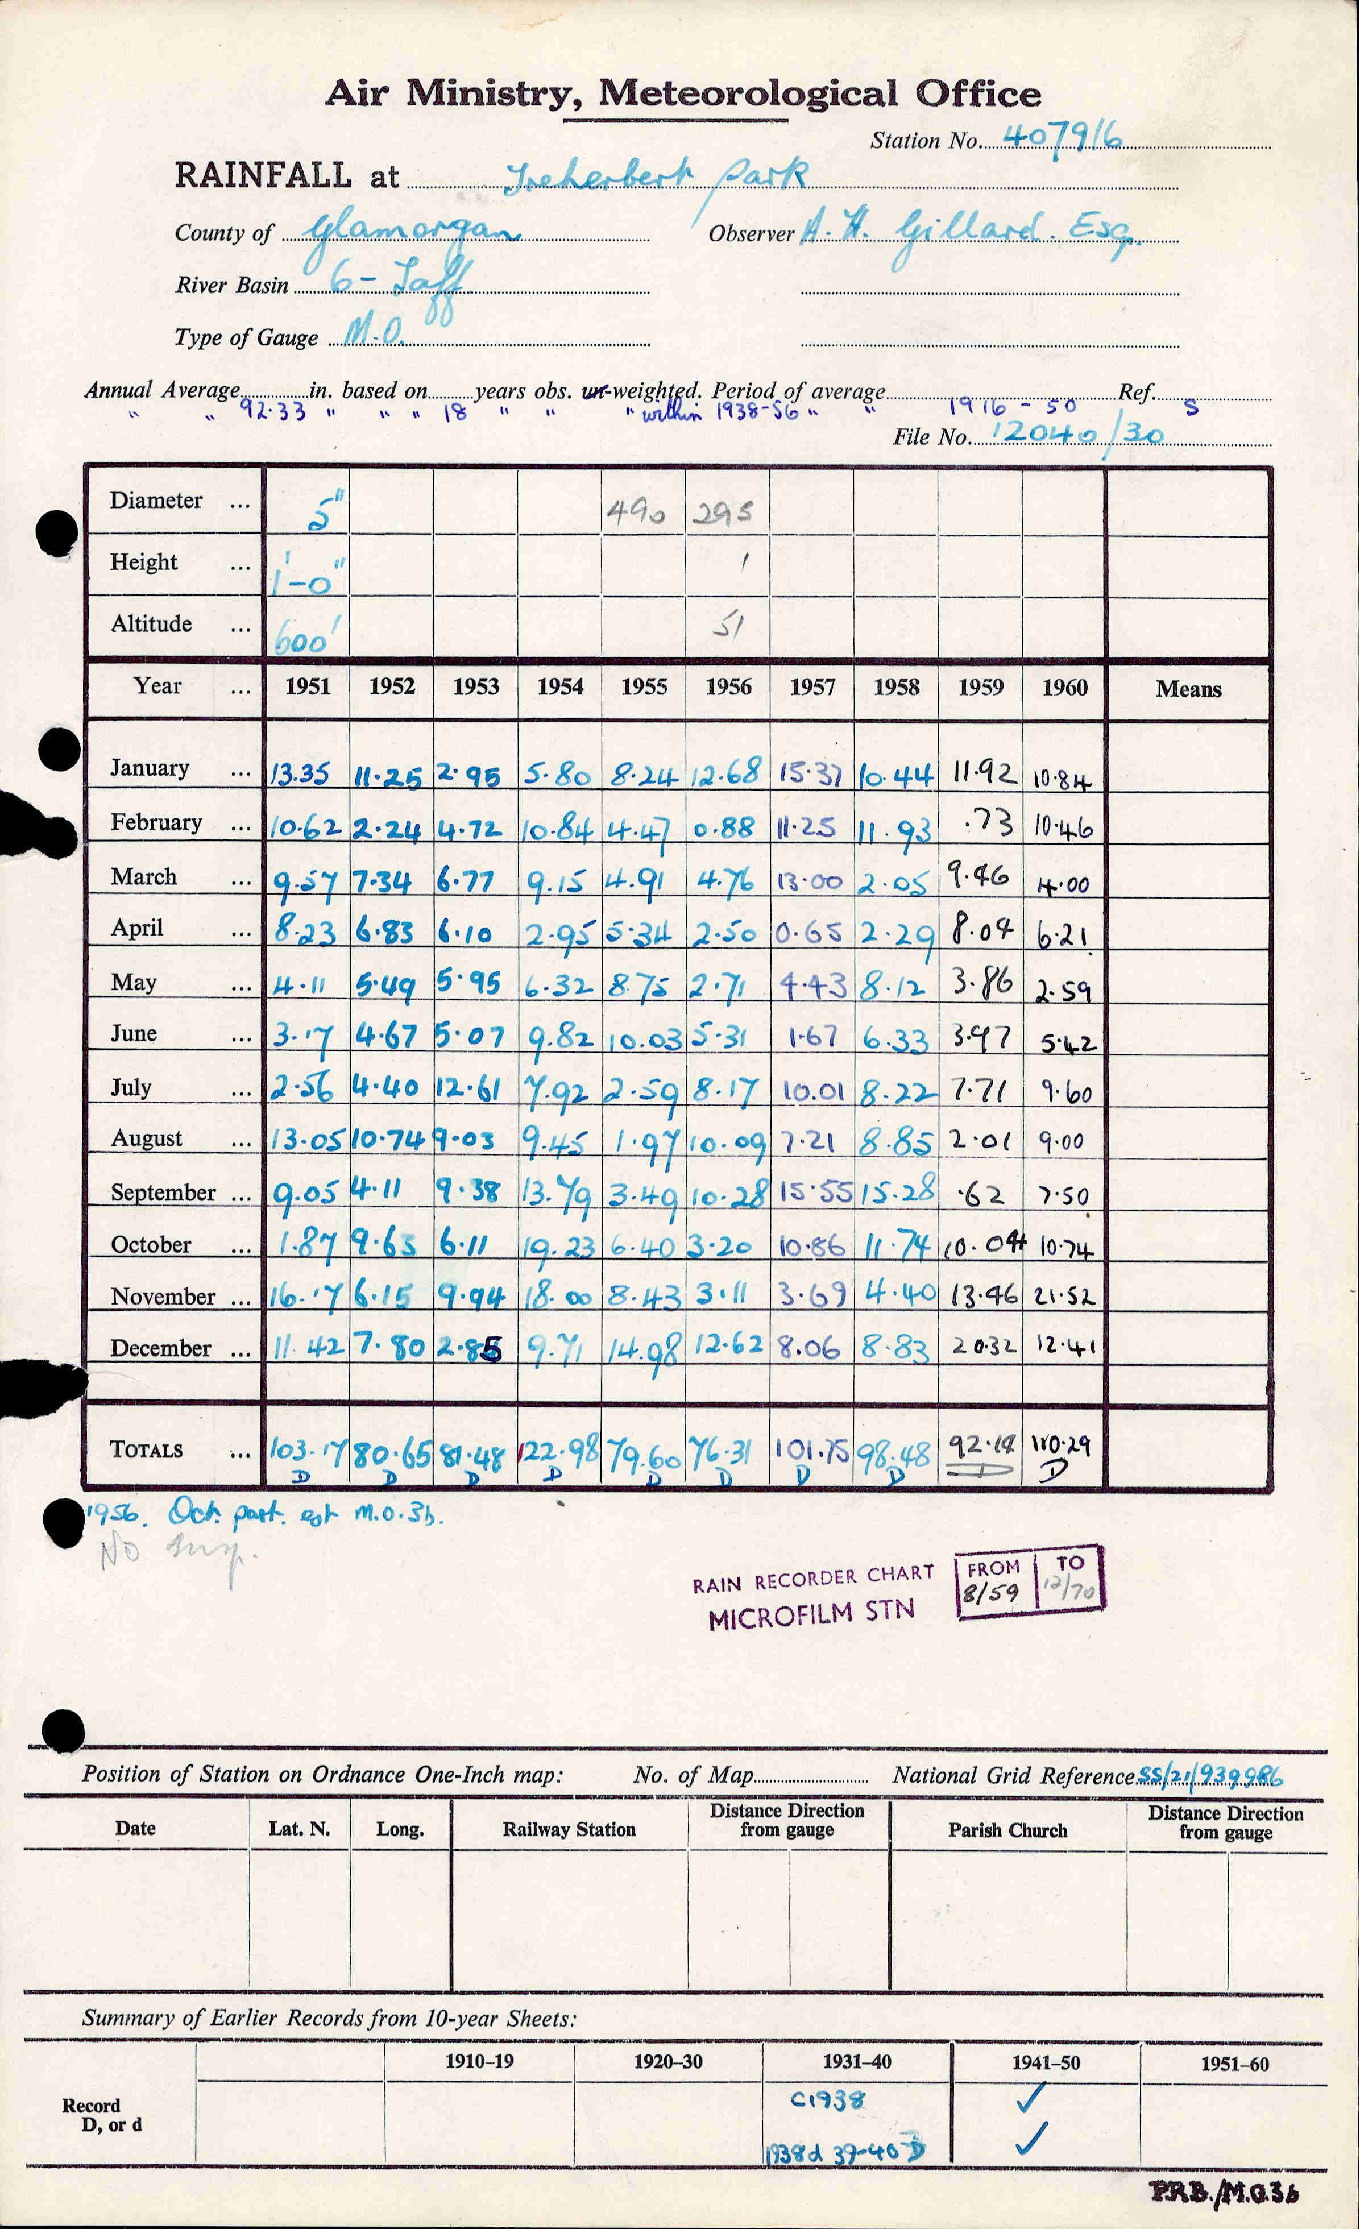 Air Ministry, Meteorological Office
Station No. 407916
RAINFALL at Treherbert Park
County of Glamorgan Observer A. H. Gillard. Esq.
River Basin 6 - Taff
Type of Gauge M.O.
Annual Average in. based on years obs. un-weighted. Period of average Ref.
" " 92.33 " " " 18 " " " within 1938-56 " " 1916 - 50 S
File No. 12040/30
Diameter ... 5" 490 295
Height ... 1'-0" 1
Altitude ... 600' 51
Year ... 1951 1952 1953 1954 1955 1956 1957 1958 1959 1960 Means
January ... 13.35 11.25 2.95 5.80 8.24 12.68 15.37 10.44 11.92 10.84
February ... 10.62 2.24 4.72 10.84 4.47 0.88 11.25 11.93 .73 10.46
March ... 9.57 7.34 6.77 9.15 4.91 4.76 13.00 2.05 9.46 4.00
April ... 8.23 6.83 6.10 2.95 5.34 2.50 0.65 2.29 8.04 6.21
May ... 4.11 5.49 5.95 6.32 8.75 2.71 4.43 8.12 3.86 2.59
June ... 3.17 4.67 5.07 9.82 10.03 5.31 1.67 6.33 3.97 5.42
July ... 2.56 4.40 12.61 7.92 2.59 8.17 10.01 8.22 7.71 9.60
August ... 13.05 10.74 9.03 9.45 1.97 10.09 7.21 8.85 2.01 9.00
September ... 9.05 4.11 9.38 13.79 3.49 10.28 15.55 15.28 .62 7.50
October ... 1.87 9.63 6.11 19.23 6.40 3.20 10.86 11.74 10.04 10.74
November ... 16.17 6.15 9.94 18.00 8.43 3.11 3.69 4.40 13.46 21.52
December ... 11.42 7.80 2.85 9.71 14.98 12.62 8.06 8.83 20.32 12.41
TOTALS ... 103.17 80.65 81.48 122.98 79.60 76.31 101.75 98.48 92.14 110.29
D D D D D D D D D D
1956. Oct. part. est M.O.3b.
No insp.
RAIN RECORDER CHART FROM TO
MICROFILM STN 8/59 12/70
Position of Station on Ordnance One-Inch map: No. of Map National Grid Reference SS/21/939986
Date Lat. N. Long. Railway Station Distance Direction from gauge Parish Church Distance Direction from gauge
Summary of Earlier Records from 10-year Sheets:
1910–19 1920–30 1931–40 1941–50 1951–60
Record C1938 ✓
D, or d 1938d 39-40 D ✓
P.R.B./M.O.3b